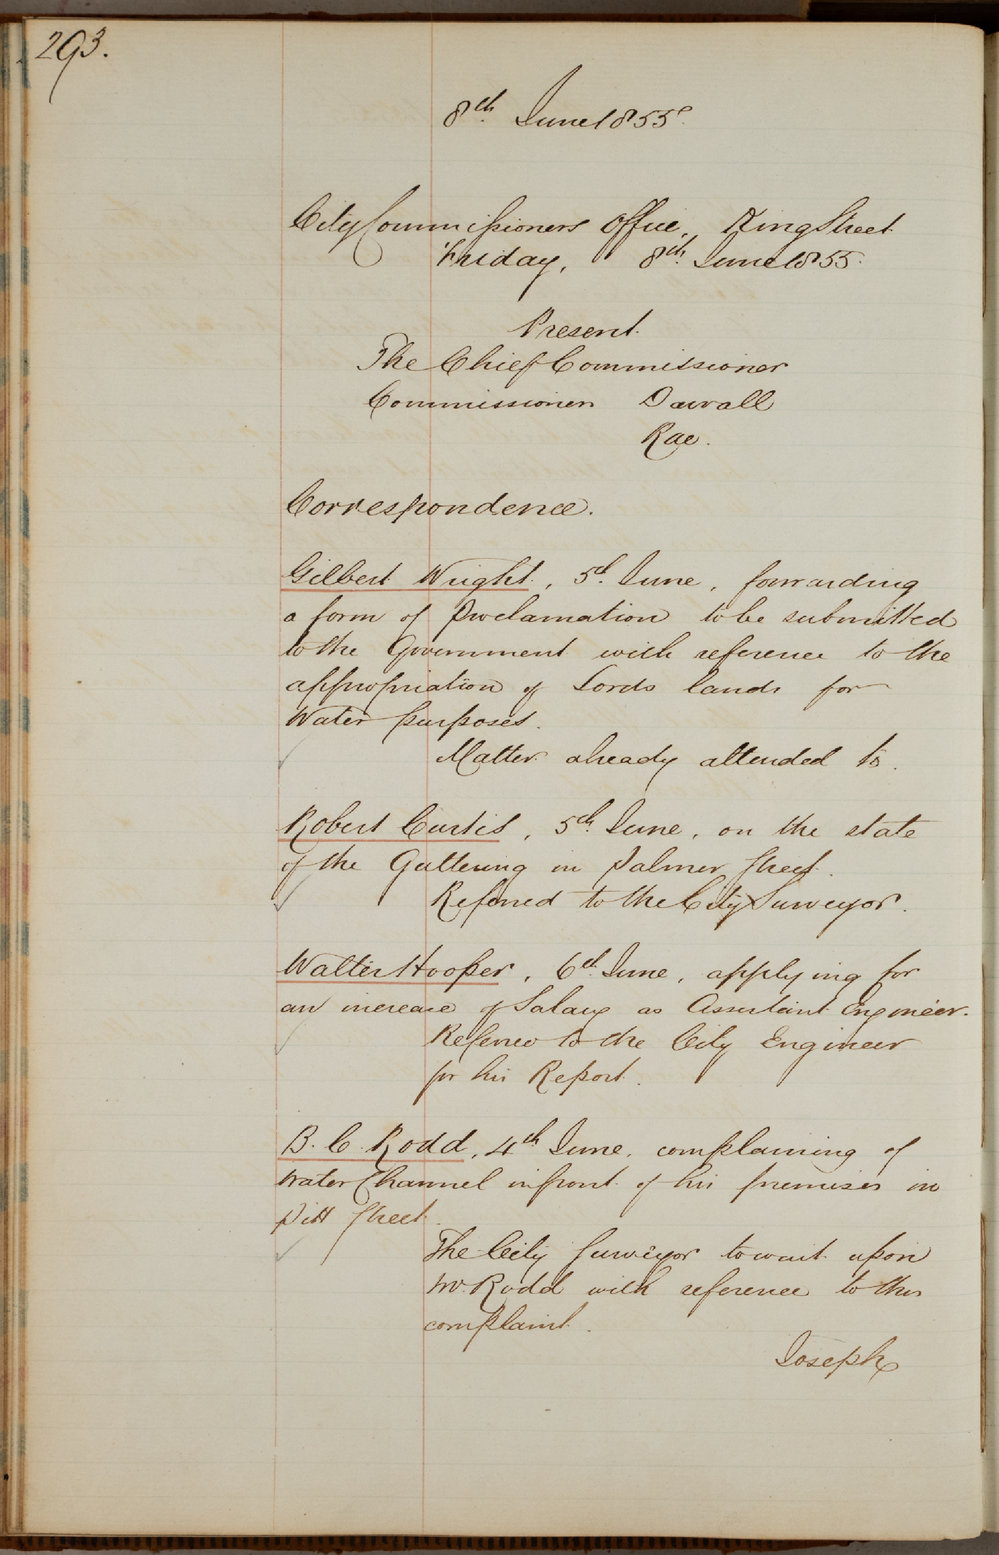 293.
8th June 1855.
City Commissioners Office, King Street
Friday, 8th June 1855.
Present.
The Chief Commissioner
Commissioners Darvall
Rae.
Correspondence.
Gilbert Wright, 5th June, forwarding
a form of Proclamation to be submitted
to the Government with reference to the
appropriation of Lords lands for
Water purposes.
Matter already attended to.
Robert Curtis, 5th June, on the state
of the Guttering in Palmer Street.
Referred to the City Surveyor.
Walter Hooper, 6th June, applying for
an increase of Salary as Assistant Engineer.
Referred to the City Engineer
for his Report.
B. C. Rodd, 4th June, complaining of
Water Channel in front of his premises in
Pitt Street.
The City Surveyor to wait upon
Mr. Rodd with reference to this
complaint.
Joseph